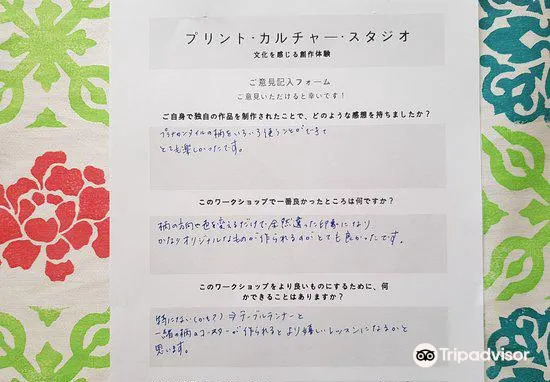 プリント・カルチャー・スタジオ
文化を感じる創作体験
ご意見記入フォーム
ご意見いただけると幸いです！
ご自身で独自の作品を制作されたことで、どのような感想を持ちましたか？
プラナカンタイルの柄をいろいろ使うことができて
とても楽しかったです。
このワークショップで一番良かったところは何ですか？
柄の方向や色を変えるだけで全然違った印象になり
かなりオリジナルなものが作られるのがとても良かったです。
このワークショップをより良いものにするために、何
かできることはありますか？
特にない(かも?) ⇒テーブルランナーと
一緒の柄のコースターが作れるとより嬉しいレッスンになるかと
思います。
Tripadvisor